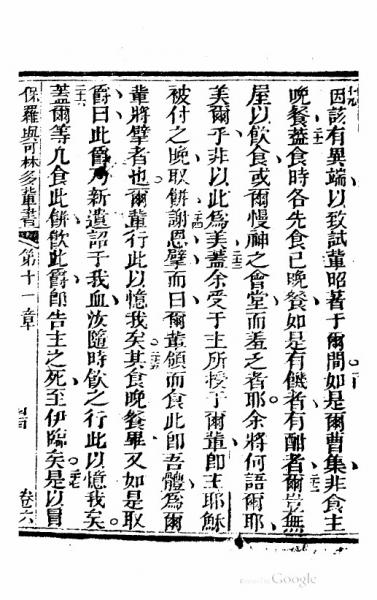 因該有異端以致試輩昭著于爾間如是爾曹集非食主
晚餐葢食時各先食已晚餐如是有饑者有酣者爾豈無
屋以飲食或爾慢神之會堂而羞乏者耶余將何語爾耶
美爾乎非以此為美葢余受于主所授于爾輩卽主耶穌
被付之晚取餅謝恩擘而曰爾輩領而食此卽吾體為爾
輩將擘者也爾輩行此以憶我矣其食晚餐畢又如是取
爵曰此爵乃新遺詔于我血汝隨時飲之行此以憶我矣
葢爾等凡食此餅飲此爵卽告主之死至伊臨矣是以員
保羅與可林多輩書 第十一章 卷六
Google